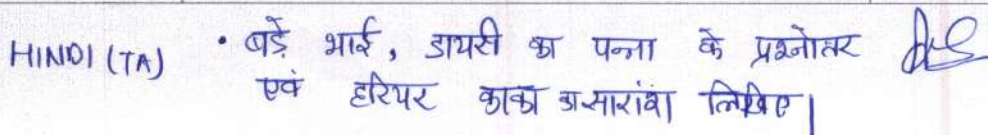 HINDI (TA) • बड़े भाई, डायरी का पन्ना के प्रश्नोतर
एवं हरिपर काका का सारांश लिखिए।